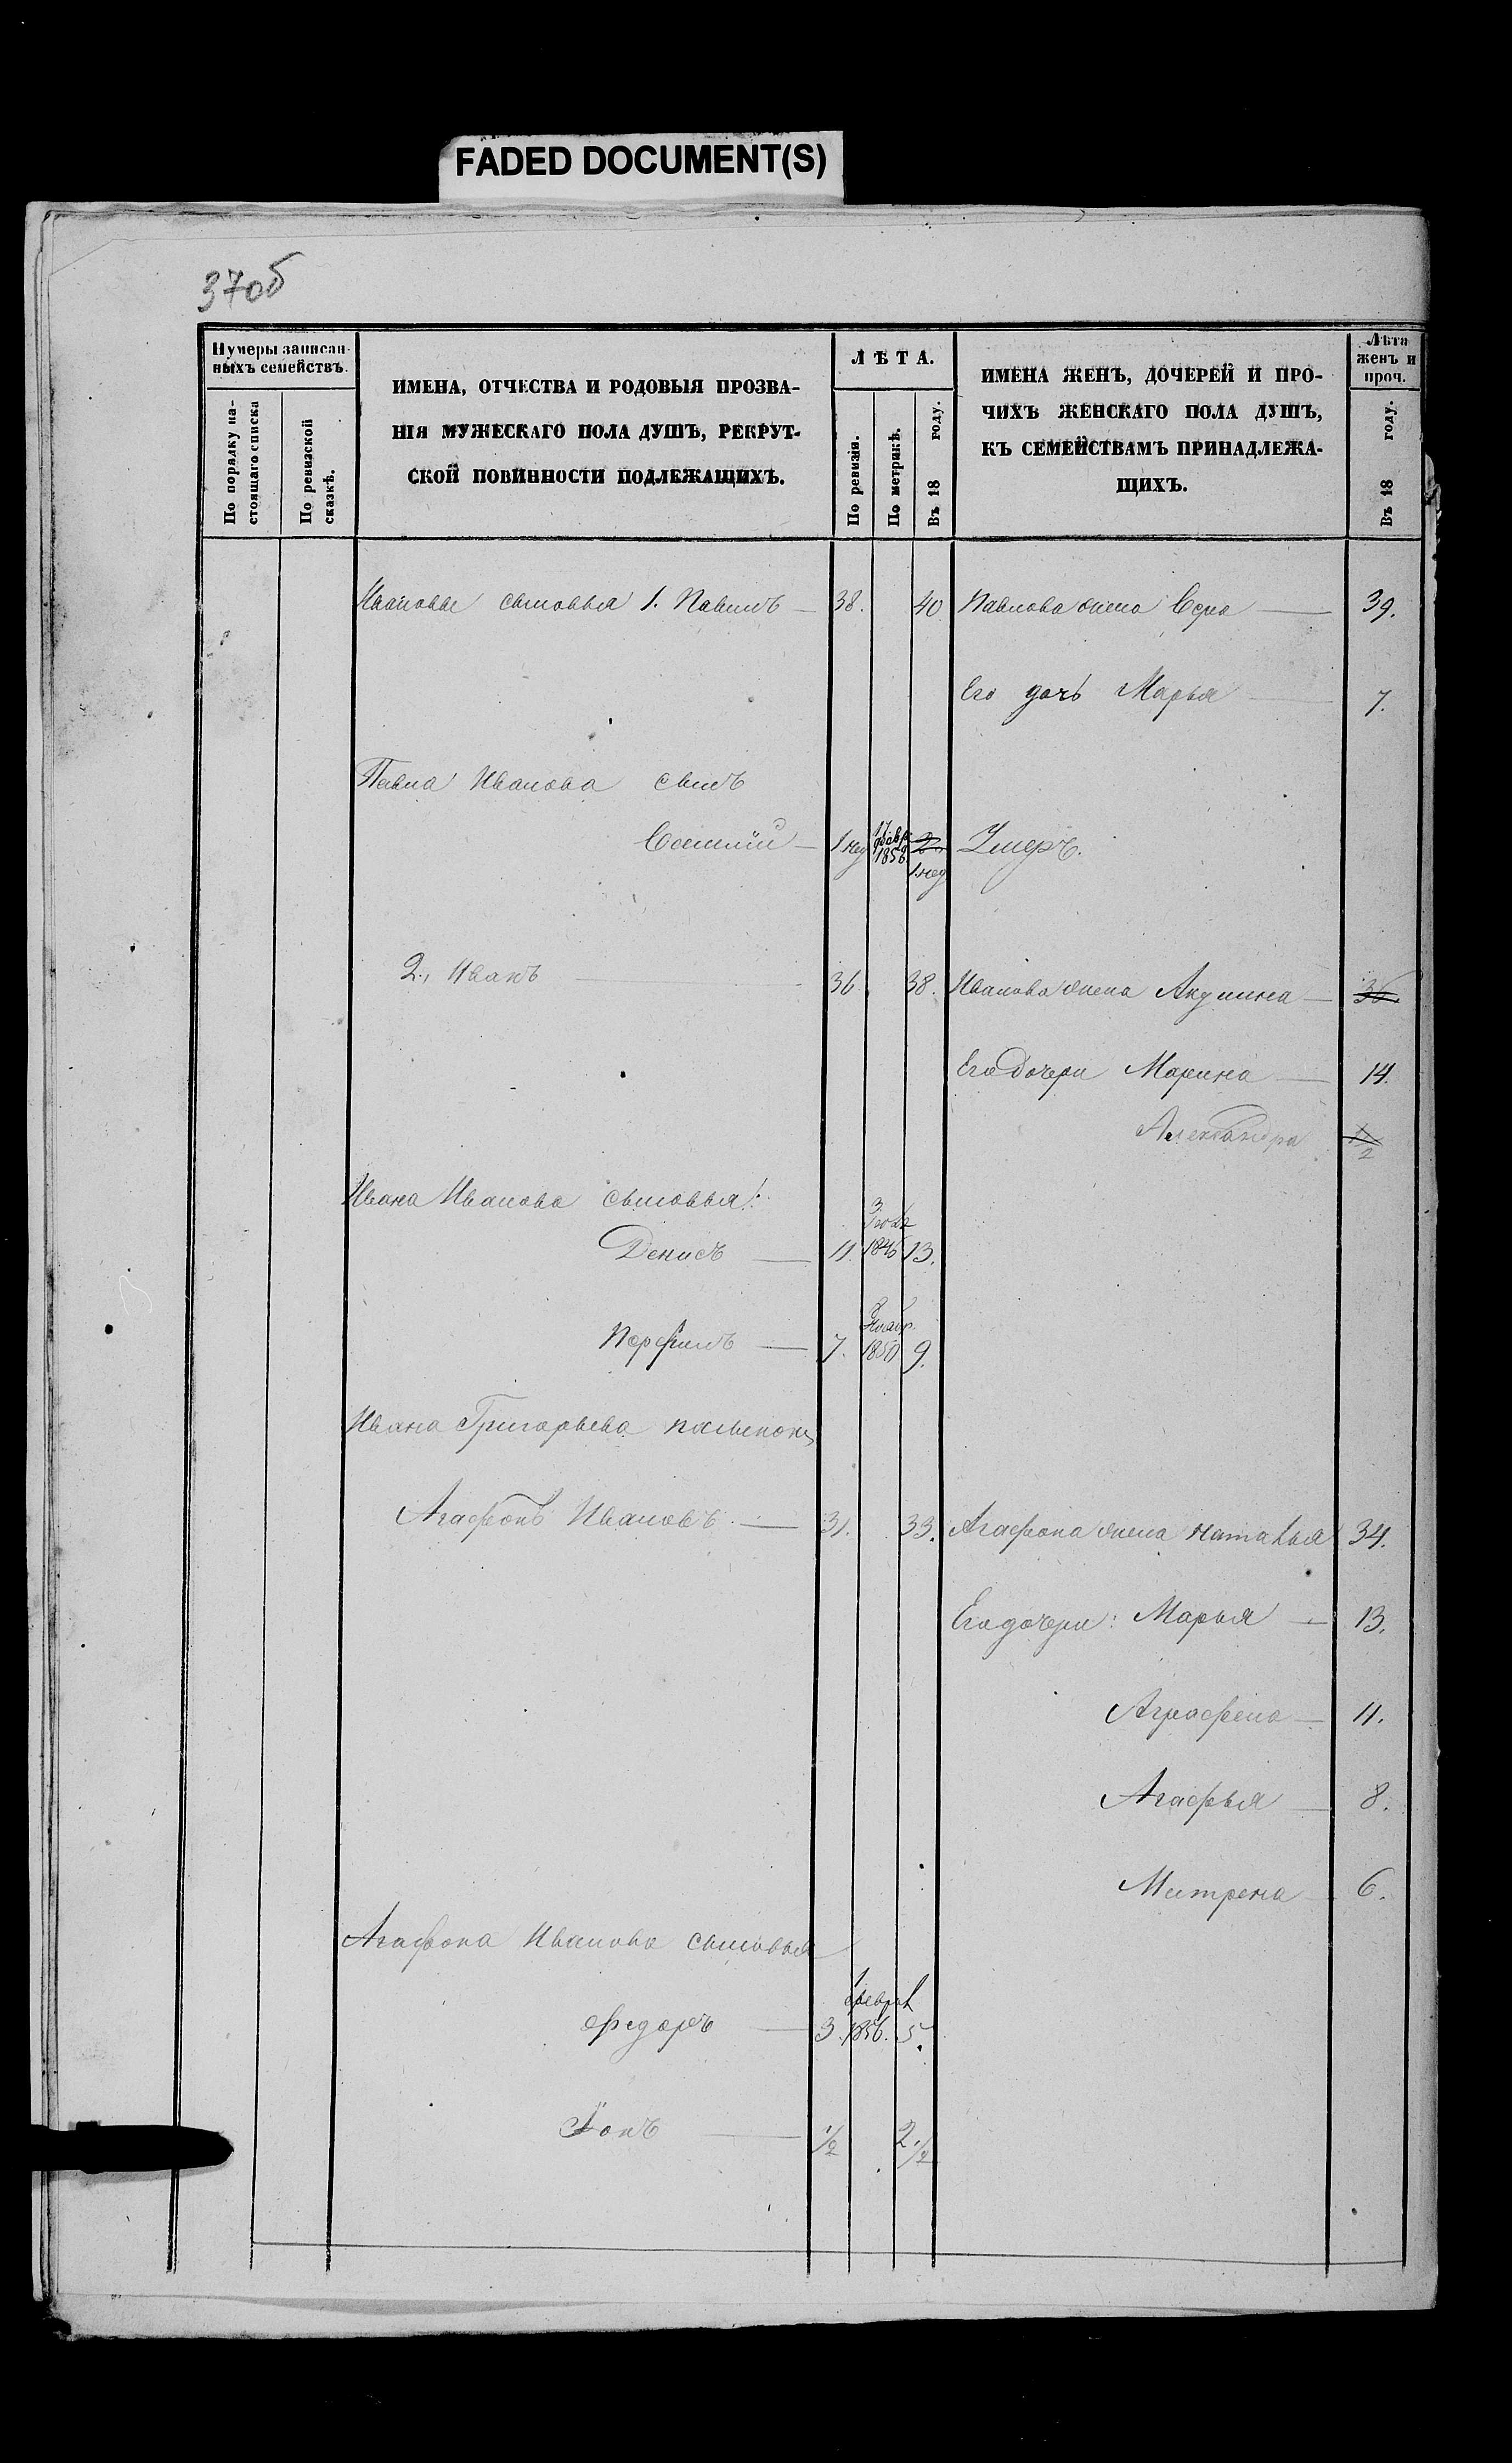 FADED DOCUMENT(S)
370б
Нумеры записан-
ныхъ семействъ.
По порядку на-
стоящаго списка
По ревизской
сказкѣ.
ИМЕНА, ОТЧЕСТВА И РОДОВЫЯ ПРОЗВА-
НІЯ МУЖЕСКАГО ПОЛА ДУШЪ, РЕКРУТ-
СКОЙ ПОВИННОСТИ ПОДЛЕЖАЩИХЪ.
ЛѢТА.
По ревизіи.
По метрикѣ.
Въ 18 году.
ИМЕНА ЖЕНЪ, ДОЧЕРЕЙ И ПРО-
ЧИХЪ ЖЕНСКАГО ПОЛА ДУШЪ,
КЪ СЕМЕЙСТВАМЪ ПРИНАДЛЕЖА-
ЩИХЪ.
Лѣта
женъ и
проч.
Въ 18 году.
Ивановы сыновья 1. Павелъ — 38. 40 Павлова жена Вера — 39.
Его дочь Марья — 7.
Павла Иванова сынъ
1 нед 17 1858 2 Умеръ.
1 нед
2., Иванъ — 36 38. Иванова жена Акулина — 36
Его дочери Марина — 14.
Александра 1/2
Ивана Иванова сыновья:
Денисъ — 11. 3 1846 13.
Перфилъ — 7. 8 Ноябр 1850 9.
Ивана Григорьева
Агафонъ Ивановъ — 31. 33. Агафона жена Наталья 34.
Его дочери: Марья — 13.
Аграфена — 11.
Агафья — 8.
Матрена — 6.
Агафона Иванова сыновья
Федоръ — 3. 1 феврал 1856. 5.
Іонъ — 1/2 2 1/2